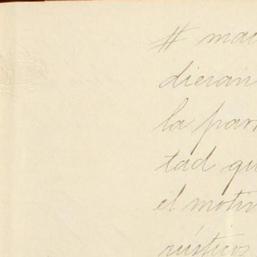 # mac
dieran
la parr
tad qu
el motiv
rústicos